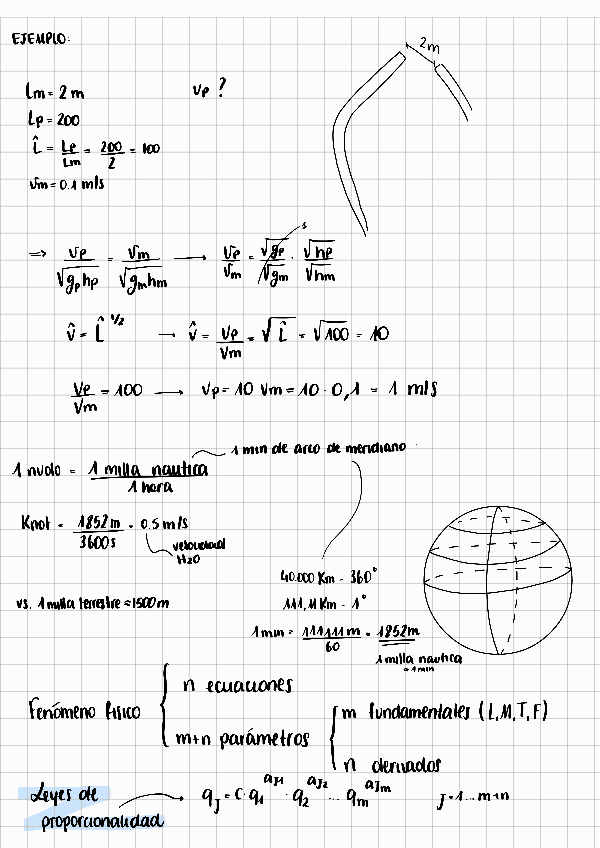 EJEMPLO:
2m
Lm = 2 m
vp ?
Lp = 200
L̂ = Lp/Lm = 200/2 = 100
vm = 0.1 m/s
⇒ vp/√(gp hp) = vm/√(gm hm) → vp/vm = √gp/√gm · √hp/√hm
1
v̂ = L̂^1/2 → v̂ = vp/vm = √L̂ = √100 = 10
vp/vm = 100 → vp = 10 vm = 10 · 0,1 = 1 m/s
1 min de arco de meridiano
1 nudo = 1 milla nautica / 1 hora
Knot = 1852m/3600s = 0.5 m/s
velocidad
H2O
40.000 Km - 360°
vs. 1 milla terrestre ≈ 1500m
111,11 Km - 1°
1 min = 111111m/60 = 1852m
1 milla nautica
= 1 min
n ecuaciones
Fenómeno físico
m+n parámetros
m fundamentales (L,M,T,F)
n derivados
Leyes de
proporcionalidad
qJ = C · q1^aJ1 · q2^aJ2 ... qm^aJm
J=1...m+n